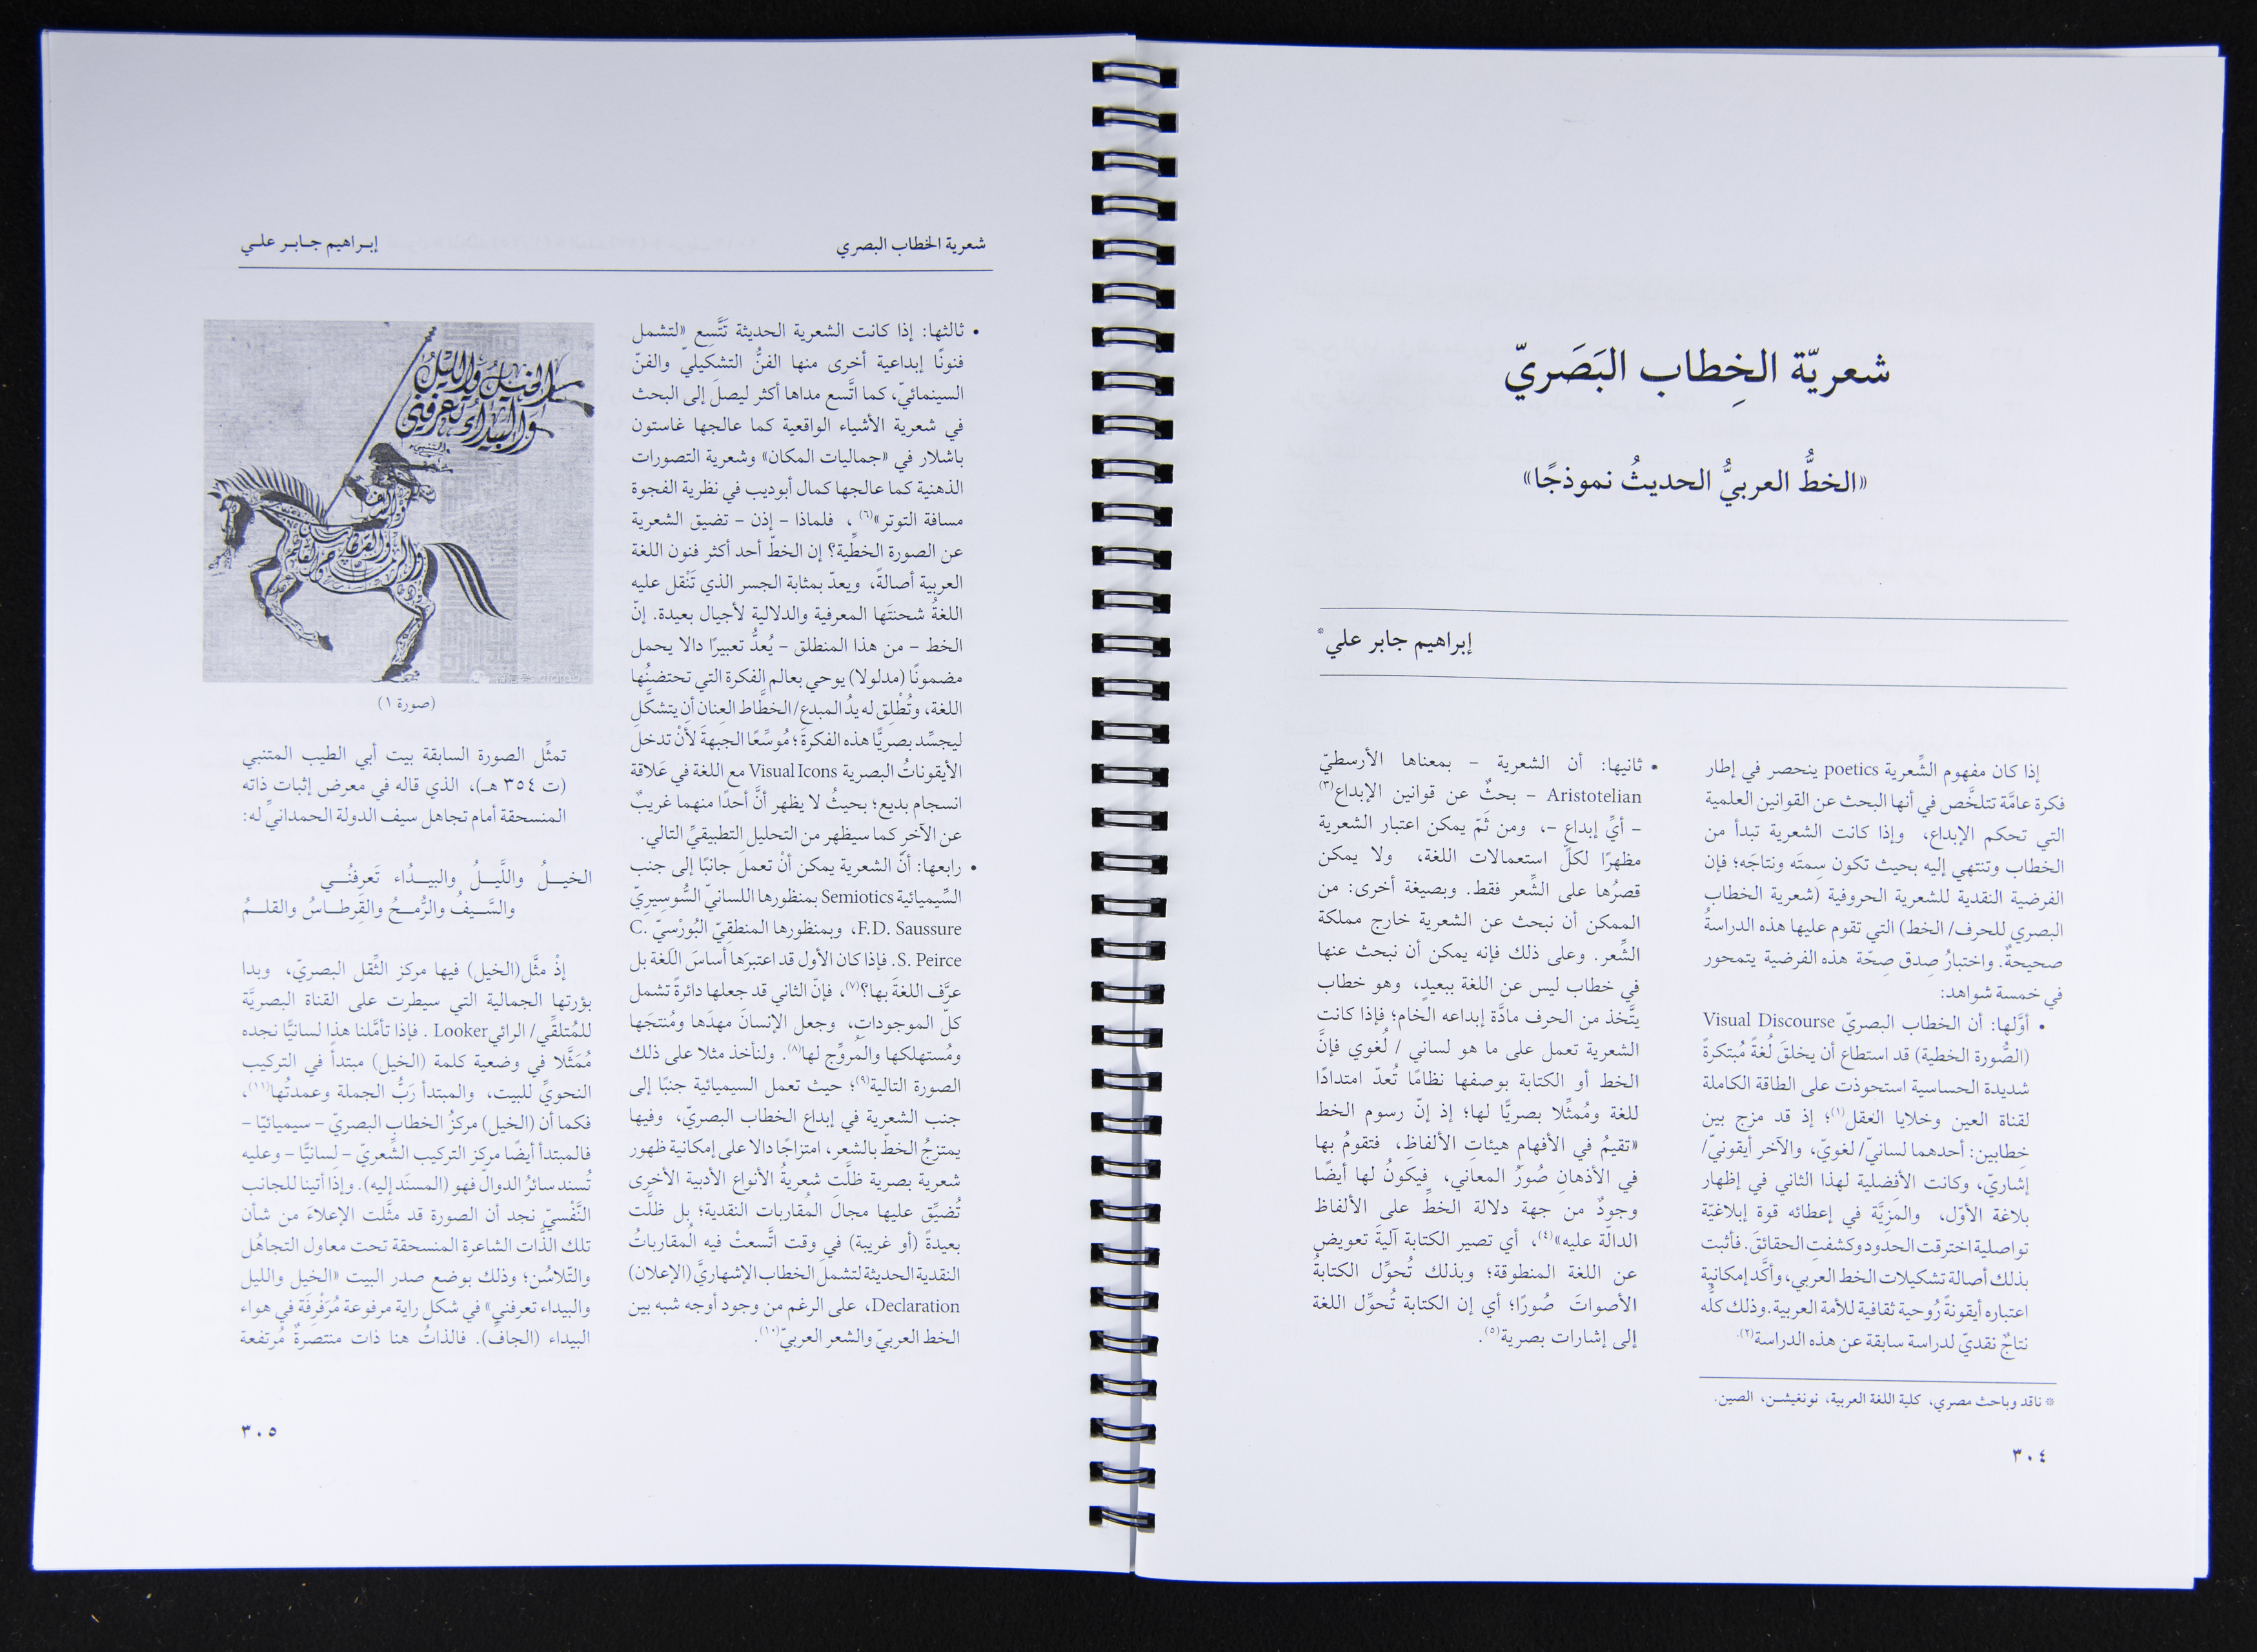 شعريّة الخِطاب البَصَريّ
«الخطُّ العربيُّ الحديثُ نموذجًا»
إبراهيم جابر علي*
إذا كان مفهوم الشِّعرية poetics ينحصر في إطار
فكرة عامَّة تتلخَّص في أنها البحث عن القوانين العلمية
التي تحكم الإبداع، وإذا كانت الشعرية تبدأ من
الخطاب وتنتهي إليه بحيث تكون سِمتَه ونتاجَه؛ فإن
الفرضية النقدية للشعرية الحروفية (شعرية الخطاب
البصري للحرف/ الخط) التي تقوم عليها هذه الدراسةُ
صحيحةٌ. واختبارُ صِدق صِحّة هذه الفرضية يتمحور
في خمسة شواهد:
• أوَّلها: أن الخطاب البصريّ Visual Discourse
(الصُّورة الخطية) قد استطاع أن يخلقَ لُغةً مُبتكرةً
شديدة الحساسية استحوذت على الطاقة الكاملة
لقناة العين وخلايا العقل(١)؛ إذ قد مزج بين
خِطابين: أحدهما لسانيّ/ لغويّ، والآخر أيقونيّ/
إشاريّ، وكانت الأفضلية لهذا الثاني في إظهار
بلاغة الأوّل، والمَزِيَّة في إعطائه قوة إبلاغيّة
تواصلية اخترقت الحدود وكشفتِ الحقائقَ. فأثبت
بذلك أصالة تشكيلات الخط العربي، وأكَّد إمكانية
اعتباره أيقونةً رُوحية ثقافية للأمة العربية. وذلك كلُّه
نتاجٌ نقديّ لدراسة سابقة عن هذه الدراسة(٢).
* ناقد وباحث مصري، كلية اللغة العربية، نونغيشـن، الصين.
٣٠٤
• ثانيها: أن الشعرية – بمعناها الأرسطيّ
Aristotelian – بحثٌ عن قوانين الإبداع(٣)
– أيِّ إبداع –، ومن ثَمّ يمكن اعتبار الشعرية
مظهرًا لكلِّ استعمالات اللغة، ولا يمكن
قصرُها على الشِّعر فقط. وبصيغة أخرى: من
الممكن أن نبحث عن الشعرية خارج مملكة
الشِّعر. وعلى ذلك فإنه يمكن أن نبحث عنها
في خطاب ليس عن اللغة ببعيدٍ، وهو خطاب
يتَّخذ من الحرف مادَّة إبداعه الخام؛ فإذا كانت
الشعرية تعمل على ما هو لساني / لُغوي فإنَّ
الخط أو الكتابة بوصفها نظامًا تُعدّ امتدادًا
للغة ومُمثِّلا بصريًّا لها؛ إذ إنّ رسوم الخط
«تقيمُ في الأفهامِ هيئاتِ الألفاظِ، فتقومُ بها
في الأذهانِ صُورُ المعاني، فيكونُ لها أيضًا
وجودٌ من جهة دلالة الخطِّ على الألفاظ
الدالّة عليه»(٤)، أي تصير الكتابة آليةَ تعويضٍ
عن اللغة المنطوقة؛ وبذلك تُحوِّل الكتابةُ
الأصواتَ صُورًا؛ أي إن الكتابة تُحوِّل اللغة
إلى إشارات بصرية(٥).
شعرية الخطاب البصري
إبـراهيم جـابـر علـي
• ثالثها: إذا كانت الشعرية الحديثة تَتَّسِع «لتشمل
فنونًا إبداعية أخرى منها الفنُّ التشكيليّ والفنّ
السينمائيّ، كما اتَّسع مداها أكثر ليصلَ إلى البحث
في شعرية الأشياء الواقعية كما عالجها غاستون
باشلار في «جماليات المكان» وشعرية التصورات
الذهنية كما عالجها كمال أبوديب في نظرية الفجوة
مسافة التوتر»(٦)، فلماذا – إذن – تضيق الشعرية
عن الصورة الخطِّية؟ إن الخطّ أحد أكثر فنون اللغة
العربية أصالةً، ويعدّ بمثابة الجسر الذي تَنْقل عليه
اللغةُ شحنتَها المعرفية والدلالية لأجيال بعيدة. إنّ
الخط – من هذا المنطلق – يُعدُّ تعبيرًا دالا يحمل
مضمونًا (مدلولا) يوحي بعالم الفكرة التي تحتضنُها
اللغة، وتُطْلِق له يدُ المبدع/ الخطَّاط العِنان أن يتشكَّل
ليجسِّد بصريًّا هذه الفكرةَ؛ مُوسِّعًا الجبهةَ لأنْ تدخلَ
الأيقوناتُ البصرية Visual Icons مع اللغة في عَلاقة
انسجام بديع؛ بحيثُ لا يظهر أنَّ أحدًا منهما غريبٌ
عن الآخر كما سيظهر من التحليل التطبيقيِّ التالي.
• رابعها: أنَّ الشعرية يمكن أنْ تعملَ جانبًا إلى جنب
السِّيميائية Semiotics بمنظورها اللسانيّ السُّوسِيرِيّ
F.D. Saussure، وبمنظورها المنطقِيّ البُورْسيّ C.
S. Peirce. فإذا كان الأول قد اعتبرَها أساسَ اللغة بل
عرَّف اللغةَ بها؟(٧)، فإنّ الثاني قد جعلها دائرةً تشمل
كلَّ الموجوداتِ، وجعل الإنسانَ مهدَها ومُنتجَها
ومُستهلكها والمُروِّج لها(٨). ولنأخذ مثلا على ذلك
الصورة التالية(٩)؛ حيث تعمل السيميائية جنبًا إلى
جنب الشعرية في إبداع الخطاب البصريّ، وفيها
يمتزجُ الخطّ بالشعر، امتزاجًا دالا على إمكانية ظهور
شعرية بصرية ظلَّتِ شعريةُ الأنواع الأدبية الأخرى
تُضيِّق عليها مجالَ المُقاربات النقدية؛ بل ظلَّت
بعيدةً (أو غريبة) في وقت اتَّسعتْ فيه المُقارباتُ
النقدية الحديثة لتشملَ الخطاب الإشهاريَّ (الإعلان)
Declaration، على الرغم من وجود أوجه شبه بين
الخط العربيّ والشعر العربيّ(١٠).
الخيل والليل
والبيداء تعرفني
والسيف
والرمح والقرطاس والقلم
(صورة ١)
تمثِّل الصورة السابقة بيت أبي الطيب المتنبي
(ت ٣٥٤ هـ)، الذي قاله في معرض إثبات ذاته
المنسحقة أمام تجاهل سيف الدولة الحمدانيِّ له:
الخيـــلُ واللَّيـــلُ والبيـــدُاء تَعرِفنُـــي
والسَّـــيفُ والرُّمـــحُ والقَرِطـــاسُ والقلـــمُ
إذْ مثَّل (الخيل) فيها مركز الثِّقل البصريّ، وبدا
بؤرتها الجمالية التي سيطرت على القناة البصريَّة
للمُتلقِّي/ الرائي Looker. فإذا تأمَّلنا هذا لسانيًّا نجده
مُمَثَّلا في وضعية كلمة (الخيل) مبتدأ في التركيب
النحويِّ للبيت، والمبتدأ رَبُّ الجملة وعمدتُها(١١)،
فكما أن (الخيل) مركزُ الخطاب البصريّ – سيميائيًا –
فالمبتدأ أيضًا مركز التركيب الشِّعريّ – لِسانيًّا – وعليه
تُسند سائرُ الدوالّ فهو (المسنَد إليه). وإذا أتينا للجانب
النَّفْسيّ نجد أن الصورة قد مثَّلت الإعلاءَ من شأن
تلك الذَّات الشاعرة المنسحقة تحت معاول التجاهُل
والتّلاسُن؛ وذلك بوضع صدر البيت «الخيل والليل
والبيداء تعرفني» في شكل راية مرفوعة مُرَفْرِفَة في هواء
البيداء (الجافّ). فالذاتُ هنا ذات منتصرةٌ مُرتفعة
٣٠٥